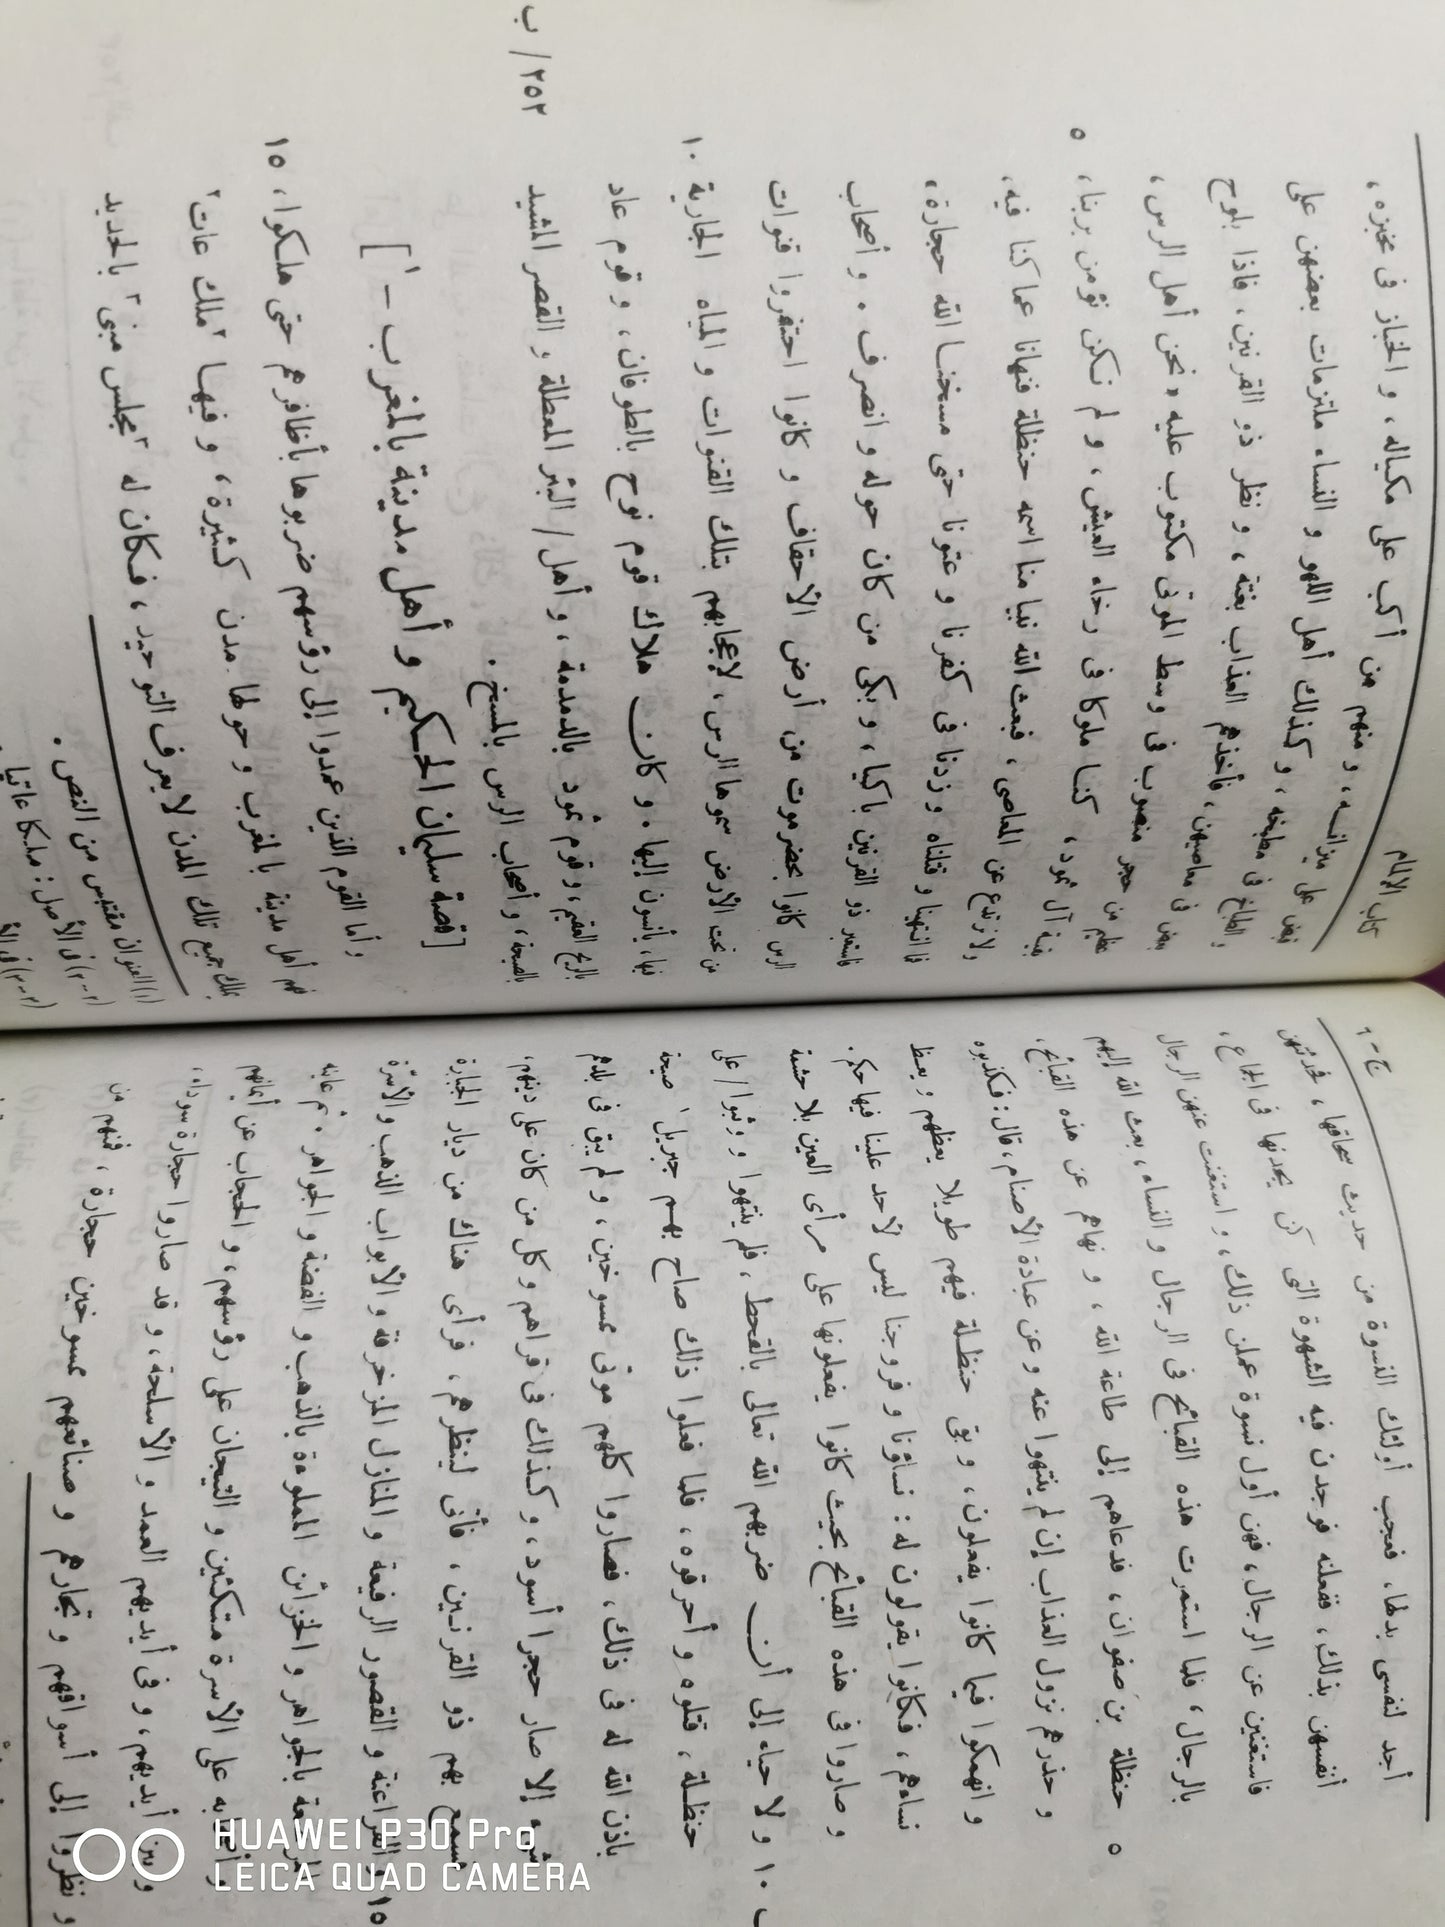 ج - ٦
أجد لنفسى بدلها، فعجب أولئك النسوة من حديث سحاقها، فحدثتهن
أنفسهن بذلك، ففعلنه فوجدن فيه الشهوة التى كن يجدنها فى الجماع،
فاستغنين عن الرجال، فهن أول نسوة عملن ذلك، و استغنت عنهن الرجال
بالرجال، فلما استمرت هذه القبائح فى الرجال و النساء، بعث الله إليهم
٥ حنظلة بن صفوان، فدعاهم إلى طاعة الله، و نهاهم عن هذه القبائح،
و حذرهم نزول العذاب إن لم ينتهوا عنه و عن عبادة الأصنام، قال: فكذبوه
و انهمكوا فيما كانوا يفعلون، و بقى حنظلة فيهم طويلا يعظهم و يعظ
نساءهم، فكانوا يقولون له: نساؤنا و فروجنا ليس لأحد علينا فيها حكم.
و صاروا فى هذه القبائح بحيث كانوا يفعلونها على مرأى العين بلا حشمة
١٠ و لا حياء إلى أن ضربهم الله تعالى بالقحط، فلم ينتهوا و وثبوا / على
حنظلة، قتلوه و أحرقوه، فلما فعلوا ذلك صاح بهم جبريل ١ صيحة
باذن الله له فى ذلك، فصاروا كلهم موتى ممسوخين، و لم يبق فى بلدهم
إلا صار حجرا أسود، و كذلك فى قراهم و كل من كان على دينهم،
بهم ذو القرنين، فأتى لينظرهم، فرأى هناك من ديار الجبابرة
١٥ و الفراعنة و القصور الرفيعة و المنازل المزخرفة و الأبواب الذهب و الأسرّة
بالجواهر و الخزائن المملوءة بالذهب و الفضة و الجواهر. ثم عاينه
على الأسرة متكئين و التيجان على رؤسهم، و الحجاب عن أيمانهم
و بين أيديهم، و فى أيديهم العمد و الأسلحة، و قد صاروا حجارة سوداء،
و نظروا إلى أسواقهم و تجارهم و صنائعهم ممسوخين حجارة، فمنهم من
كتاب الإلمام
قبض على ميزانه، و منهم من أكب على مكياله، و الخباز فى مخبزه،
و الطباخ فى مطبخه، و كذلك أهل اللهو و النساء ملتزمات بعضهن على
بعض فى معاصيهن، فأخذهم العذاب بغتة، و نظر ذو القرنين، فاذا بلوح
عظيم من حجر منصوب فى وسط الموتى مكتوب عليه « نحن أهل الرس،
بقية آل ثمود، كنا ملوكا فى رخاء العيش، و لم نكن نؤمن بربنا، ٥
و لا نرتدع عن المعاصى، فبعث الله نبيا منا اسمه حنظلة فنهانا عما كنا فيه،
فما انتهينا و قتلناه و زدنا فى كفرنا و عتونا حتى مسخنا الله حجارة،
فاستعبر ذو القرنين باكيا، و بكى من كان حوله و انصرف. و أصحاب
الرس كانوا بحضرموت من أرض الأحقاف و كانوا احتفروا قنوات
من تحت الأرض سموها الرس، لإعجابهم بتلك القنوات و المياه الجارية ١٠
فيها، يأنسون إليها. و كان هلاك قوم نوح بالطوفان، و قوم عاد
بالريح العقيم، و قوم ثمود بالدمدمة، و أهل / البئر المعطلة و القصر المشيد ٢٥٢ / ب
بالصيحة، و أصحاب الرس بالمسخ.
[ قصة سليمان الحكيم و أهل مدينة بالمغرب - ١ ]
و أما القوم الذين عمدوا إلى رؤسهم ضربوها بأظافرهم حتى هلكوا، ١٥
فهم أهل مدينة بالمغرب و حولها مدن كثيرة، و فيها ٢ ملك عات ٢
يملك جميع تلك المدن لا يعرف التوحيد، فكان له ٣ مجلس مبنى ٣ بالحديد
(١) العنوان مقتبس من النص.
(٢-٢) فى الأصل: ملكا عاتيا.
(٣-٣) فى
HUAWEI P30 Pro
LEICA QUAD CAMERA